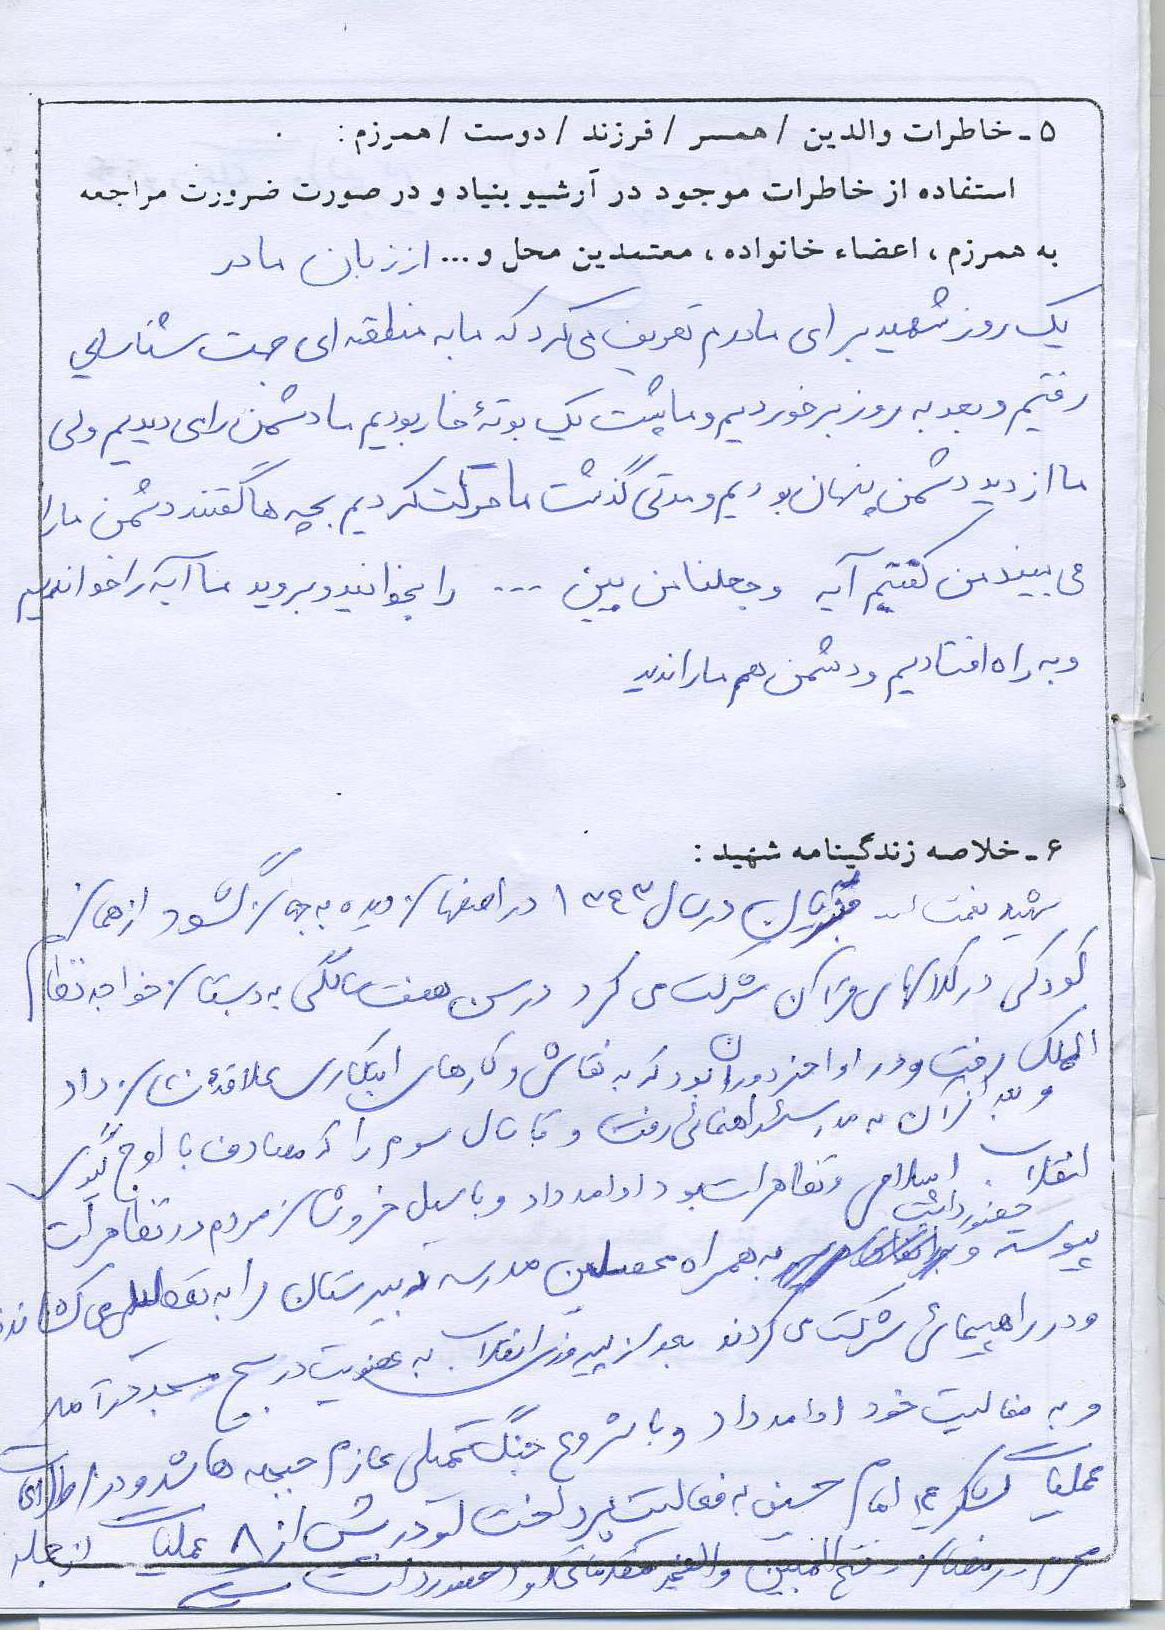 ۵ - خاطرات والدین / همسر / فرزند / دوست / همرزم :
استفاده از خاطرات موجود در آرشیو بنیاد و در صورت ضرورت مراجعه
به همرزم ، اعضاء خانواده ، معتمدین محل و ... از زبان مادر
یک روز شهید برای مادرم تعریف می کرد که ما به منطقه ای جهت شناسایی
رفتیم و بعد به روز برخوردیم و ما پشت یک بوتهٔ خار بودیم ما دشمن را می دیدیم ولی
ما از دید دشمن پنهان بودیم و مدتی گذشت ما حرکت کردیم بچه ها گفتند دشمن ما را
می بیند من گفتم آیه وجعلنا من بین ... را بخوانید و بروید ما آیه را خواندیم
و به راه افتادیم و دشمن هم ما را ندید
۶ - خلاصه زندگینامه شهید :
شهید نعمت اله در سال ۱۳۴۳ در اصفهان دیده به جهان گشود از همان
کودکی در کلاسهای قرآن شرکت می کرد در سن هفت سالگی به دبستان خواجه نظام
الملک رفت و در اواخر دوران بود که به نقاشی و کارهای ابتکاری علاقه نشان داد
و بعد از آن به مدرسه راهنمائی رفت و تا سال سوم را که مصادف با اوج گیری
انقلاب اسلامی و تظاهرات بود ادامه داد و با سیل خروشان مردم در تظاهرات
پیوسته و حضور داشت به همراه محصلین مدرسه دبیرستان را به تعطیلی می کشاندند
و در راهپیمائی شرکت می کردند بعد از پیروزی انقلاب به عضویت در بسیج مسجد درآمد
و به فعالیت خود ادامه داد و با شروع جنگ تحمیلی عازم جبهه ها شد و در اطلاعات
عملیات لشکر ۱۴ امام حسین به فعالیت پرداخت او در بیش از ۸ عملیات از جمله
محرم رمضان فتح المبین والفجر حضور داشت